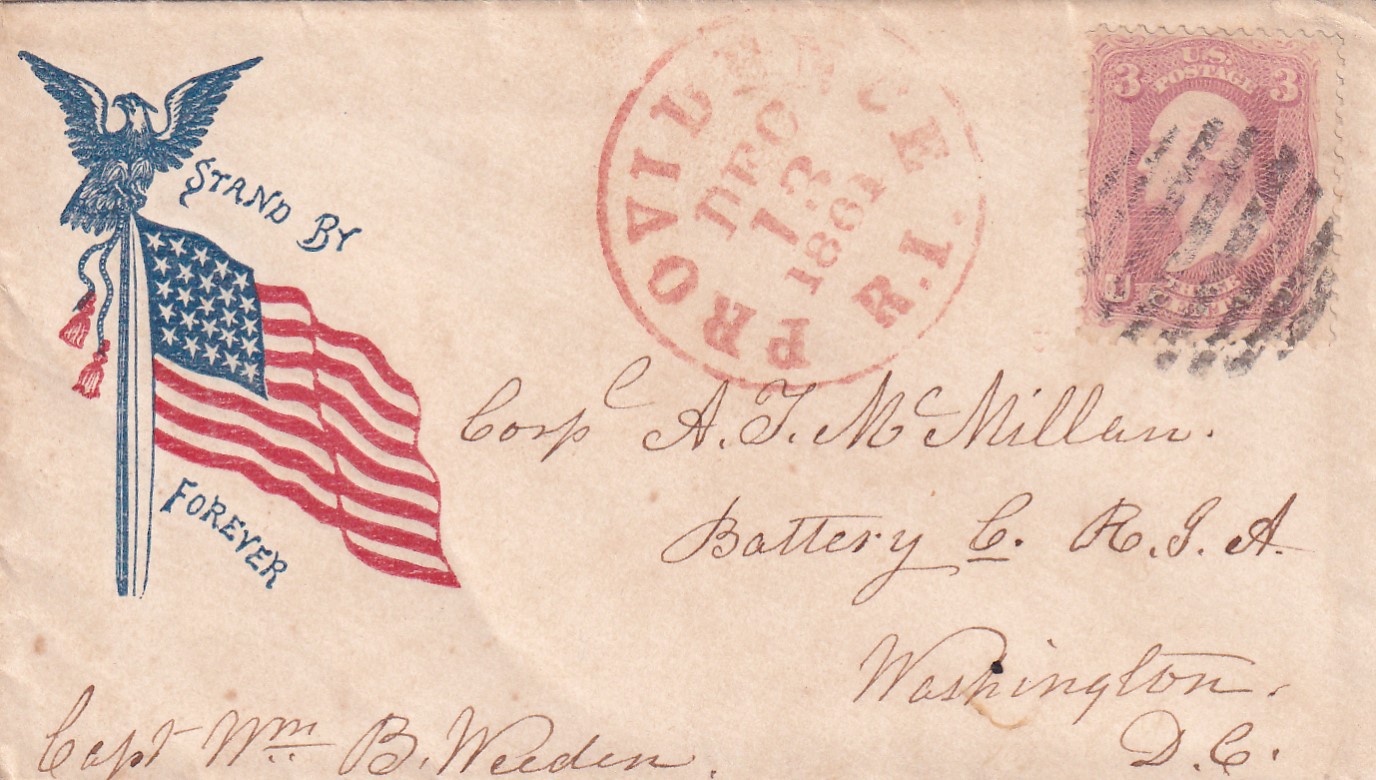 STAND BY
FOREVER
PROVIDENCE R.I.
DEC
13
1861
U.S.
POSTAGE
3 3
Corpl A. T. McMillan.
Battery C. R. I. A.
Washington.
D.C.
Capt Wm B. Weeden.